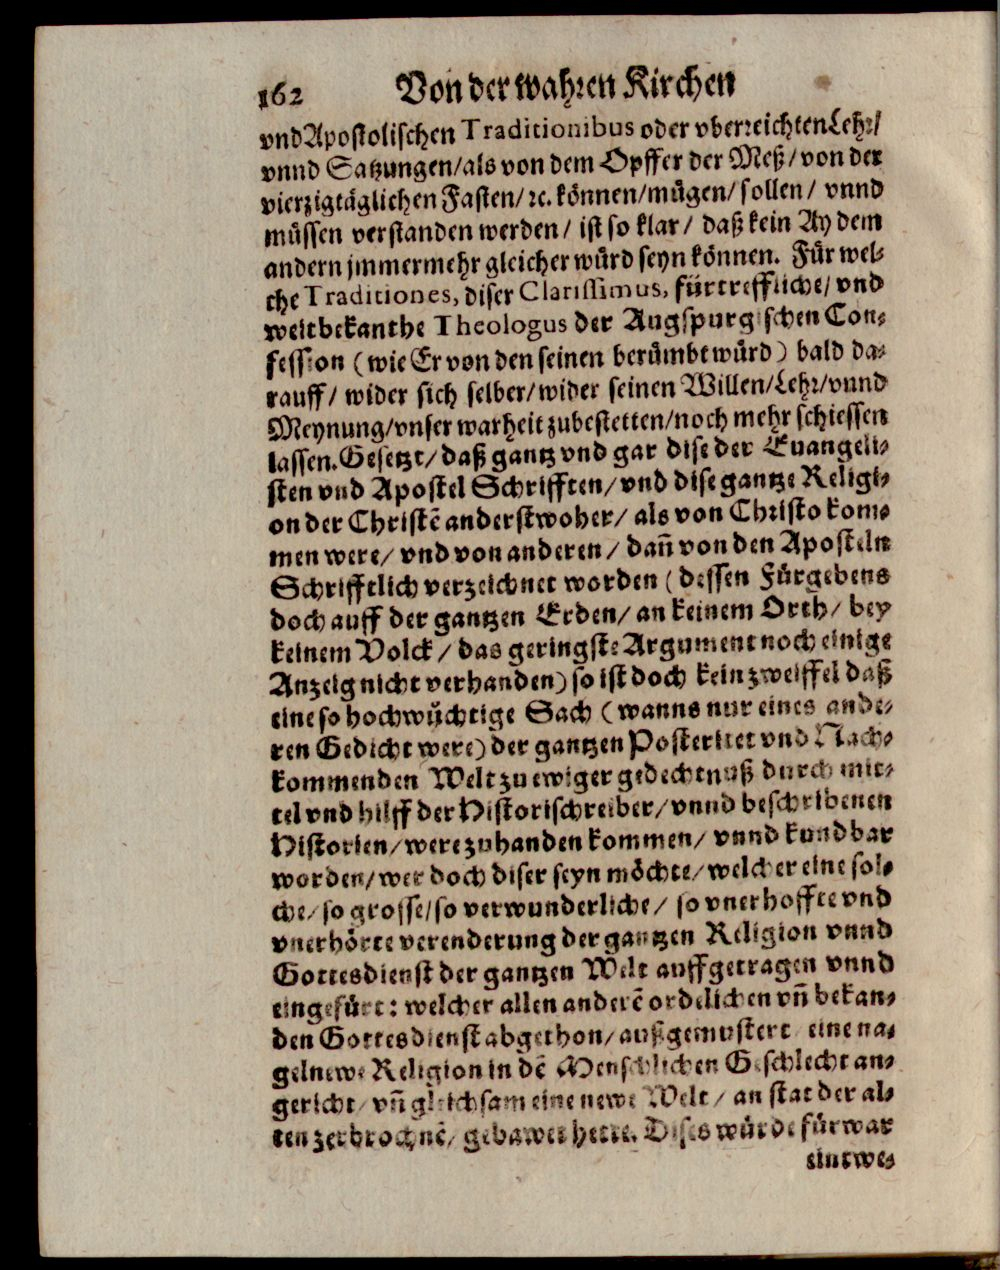 162 Von der wahren Kirchen
vnd Apostolischen Traditionibus oder vberreichten Lehr/
vnnd Satzungen/ als von dem Opffer der Meß/ von der
vierzigtäglichen Fasten/ ꝛc. können/ mügen/ sollen/ vnnd
müssen verstanden werden/ ist so klar/ daß kein Ay dem
andern jmmermehr gleicher würd seyn können. Für wel-
che Traditiones, diser Clarissimus, fürtreffliche/ vnd
weitbekanthe Theologus der Augspurgischen Con-
fession (wie Er von den seinen berümbt würd) bald da-
rauff/ wider sich selber/ wider seinen Willen/ Lehr/ vnnd
Meynung/ vnser warheit zubestetten/ noch mehr schiessen
lassen. Gesetzt/ daß gantz vnd gar dise der Euangeli-
sten vnd Apostel Schrifften/ vnd dise gantze Religi-
on der Christẽ anderstwoher/ als von Christo kom-
men were/ vnd von anderen/ dañ von den Aposteln
Schrifftlich verzeichnet worden (dessen Fürgebens
doch auff der gantzen Erden/ an keinem Orth/ bey
keinem Volck/ das geringste Argument noch einige
Anzeig nicht verhanden) so ist doch kein zweiffel daß
eine so hochwüchtige Sach (wanns nur eines ande-
ren Gedicht were) der gantzen Posteritet vnd Nach-
kommenden Welt zu ewiger gedechtnuß durch mit-
tel vnd hilff der Historischreiber/ vnnd beschribenen
Historien/ were zuhanden kommen/ vnnd kundbar
worden/ wer doch diser seyn möchte/ welcher eine sol-
che/ so grosse/ so verwunderliche/ so vnerhoffte vnd
vnerhörte verenderung der gantzen Religion vnnd
Gottesdienst der gantzen Welt auffgetragen vnnd
eingefürt: welcher allen anderẽ ordelichen vñ bekan-
den Gottesdienst abgethon/ außgemustert/ eine na-
gelnewe Religion in dẽ Menschlichen Geschlecht an-
gericht/ vñ gleichsam eine newe Welt/ an stat der al-
ten zerbrochnẽ/ gebawet hette. Dises würde fürwar
eintwe-